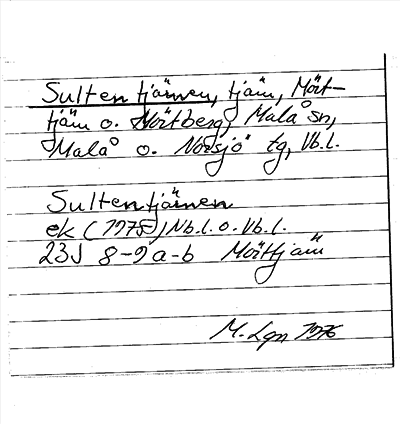 Sultentjärnen, tjärn, Mört-
tjärn o. Mörtberg, Malå sn,
Malå o. Norsjö tg, Vb.l.
Sultentjärnen
ek (1975) Nb.l. o. Vb.l.
23J 8-9 a-b Mörttjärn
M. Lgn 1976